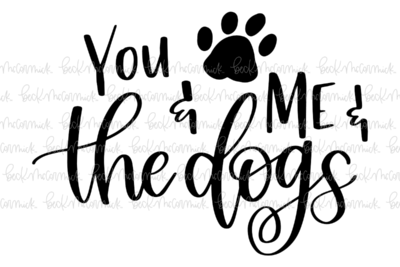 You
& ME &
the dogs